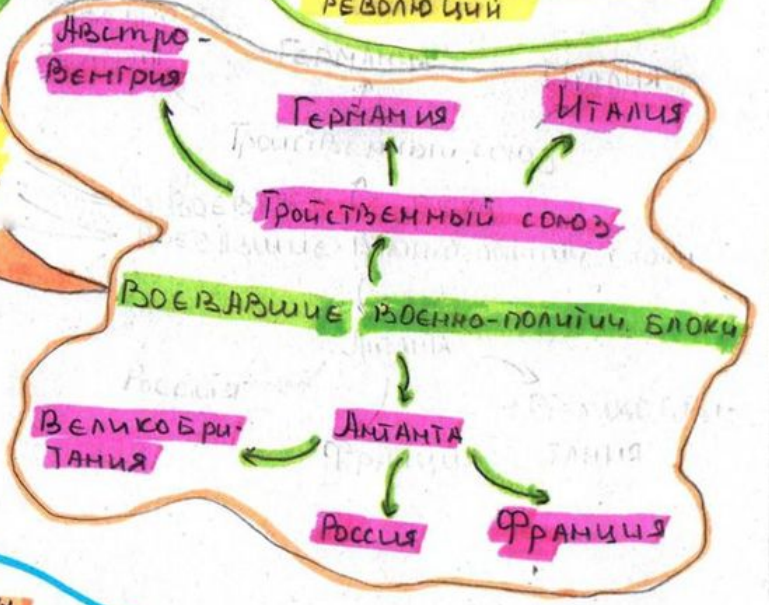 РЕВОЛЮЦИЙ
АВСТРО-
ВЕНГРИЯ
ГЕРМАНИЯ
ИТАЛИЯ
ТРОЙСТВЕННЫЙ СОЮЗ
ВОЕВАВШИЕ ВОЕННО-ПОЛИТИЧ. БЛОКИ
АНТАНТА
ВЕЛИКОБРИ-
ТАНИЯ
РОССИЯ
ФРАНЦИЯ